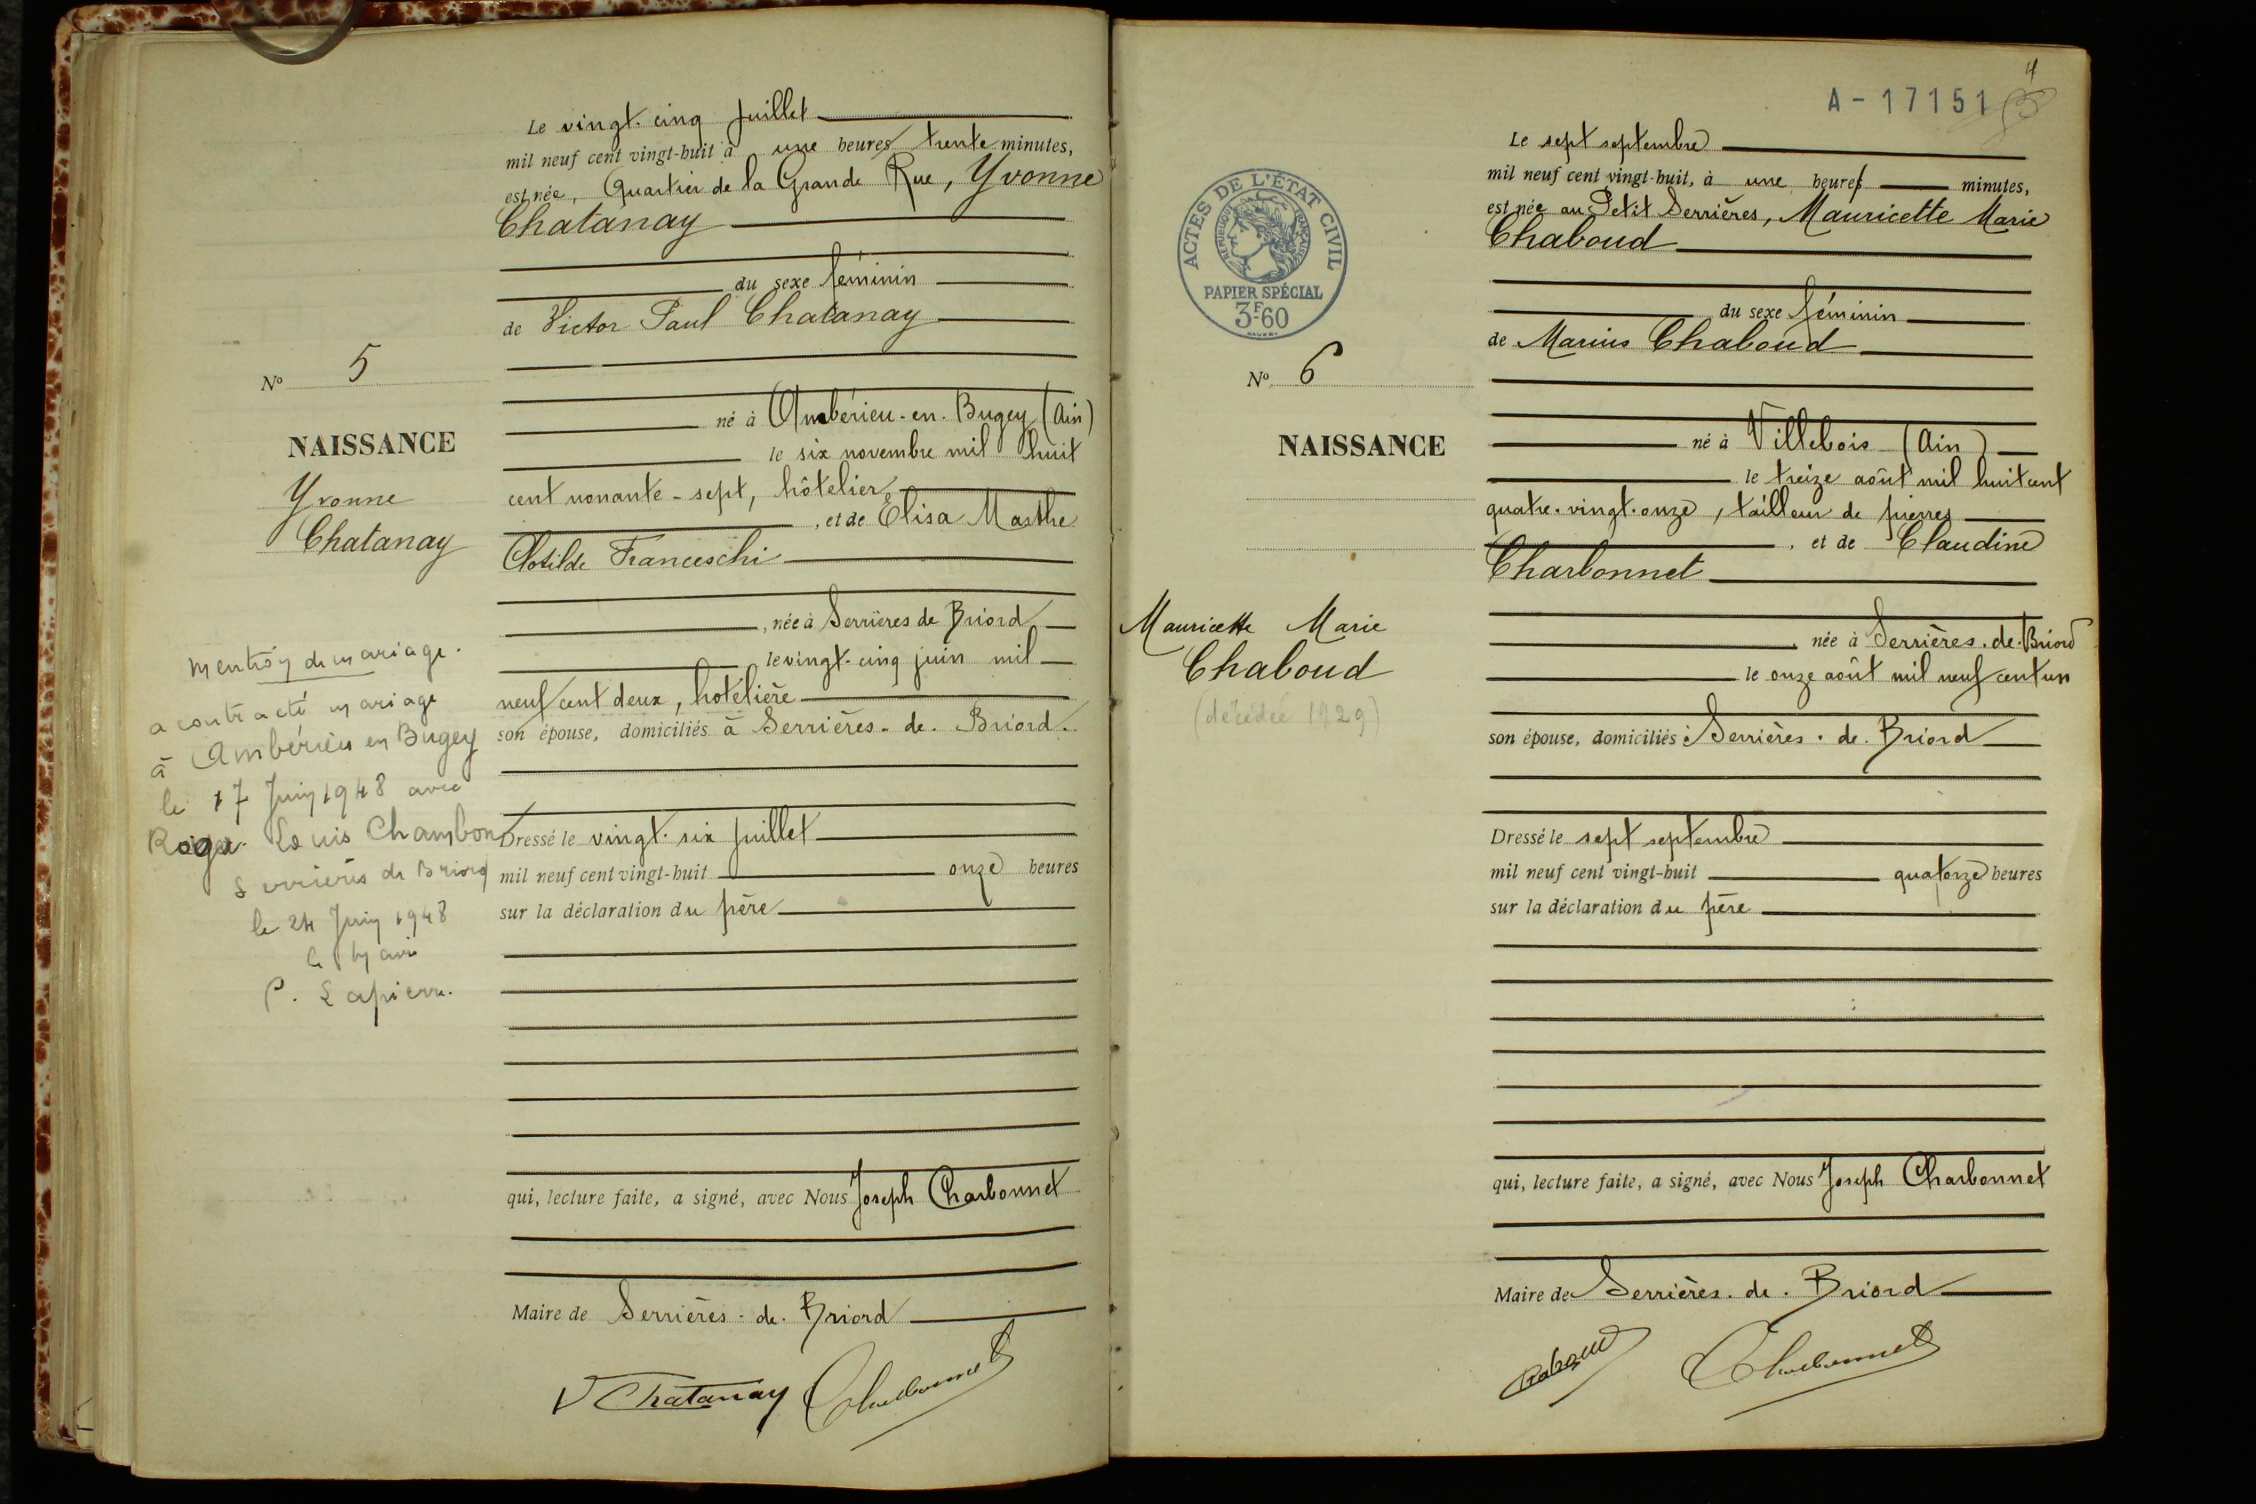 Le vingt-cinq juillet
mil neuf cent vingt-huit à une heures trente minutes,
est née, Quartier de la Grande Rue, Yvonne
Chatanay
du sexe féminin
de Victor Paul Chatanay
né à Ambérieu-en-Bugey (Ain)
le six novembre mil huit
cent nonante-sept, hôtelier
, et de Elisa Marthe
Clotilde Franceschi
, née à Serrières de Briord
le vingt-cinq juin mil
neuf cent deux, hôtelière
son épouse, domiciliés à Serrières-de-Briord.
Dressé le vingt-six juillet
mil neuf cent vingt-huit onze heures
sur la déclaration du père
qui, lecture faite, a signé, avec Nous Joseph Charbonnet
Maire de Serrières-de-Briord
V Chatanay Charbonnet
No 5
NAISSANCE
Yvonne
Chatanay
Mention de mariage.
a contracté mariage
à Ambérieu en Bugey
le 17 Juin 1948 avec
Roger Louis Chambon
Serrières de Briord
le 24 Juin 1948
le Maire
P. Lapierre.
4
A-17151
Le sept septembre
mil neuf cent vingt-huit, à une heures minutes,
est née au Petit Serrières, Mauricette Marie
Chaboud
du sexe féminin
de Marius Chaboud
né à Villebois (Ain)
le treize août mil huit cent
quatre-vingt-onze, tailleur de pierres
, et de Claudine
Charbonnet
, née à Serrières-de-Briord
le onze août mil neuf cent un
son épouse, domiciliés à Serrières-de-Briord
Dressé le sept septembre
mil neuf cent vingt-huit quatorze heures
sur la déclaration du père
qui, lecture faite, a signé, avec Nous Joseph Charbonnet
Maire de Serrières-de-Briord
Chaboud Charbonnet
ACTES DE L'ÉTAT CIVIL
RÉPUBLIQUE FRANÇAISE
PAPIER SPÉCIAL
3F60
No 6
NAISSANCE
Mauricette Marie
Chaboud
(décédée 1929)